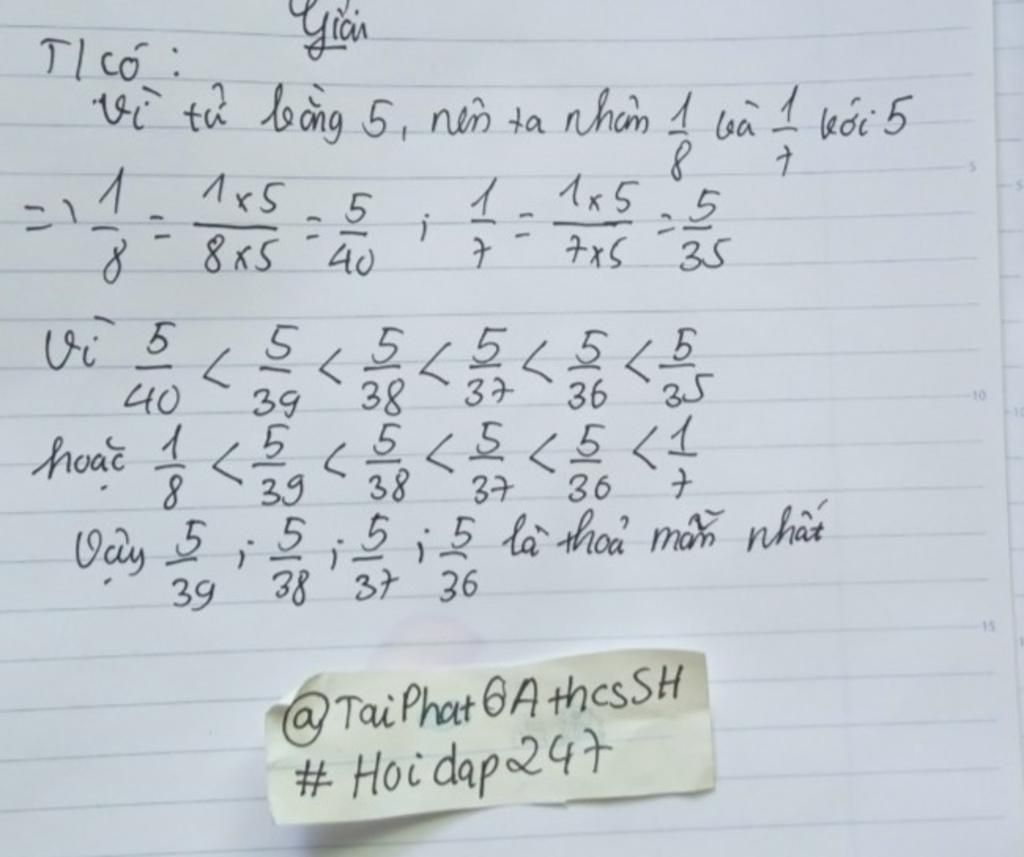 Giải
T/có:
Vì tử bằng 5, nên ta nhân 1/8 và 1/7 với 5
=> 1/8 = 1x5/8x5 = 5/40 ; 1/7 = 1x5/7x5 = 5/35
Vì 5/40 < 5/39 < 5/38 < 5/37 < 5/36 < 5/35
hoặc 1/8 < 5/39 < 5/38 < 5/37 < 5/36 < 1/7
Vậy 5/39 ; 5/38 ; 5/37 ; 5/36 là thoả mãn nhất
@TaiPhat6AthcsSH
# Hoidap247
5
10
15